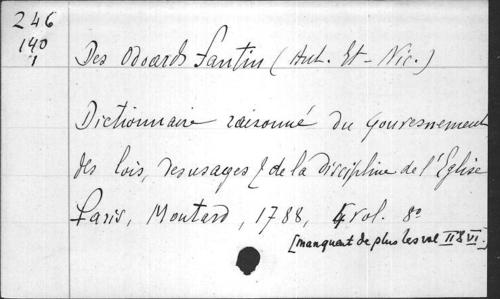 246
140
1
Des Odoards Fantin (Ant. Et-Nic.)
Dictionnaire raisonné du gouvernement
des lois, des usages & de la discipline de l'Eglise
Paris, Moutard, 1788, 4 vol. 8º
[manquent de plus les vol II & VI.]